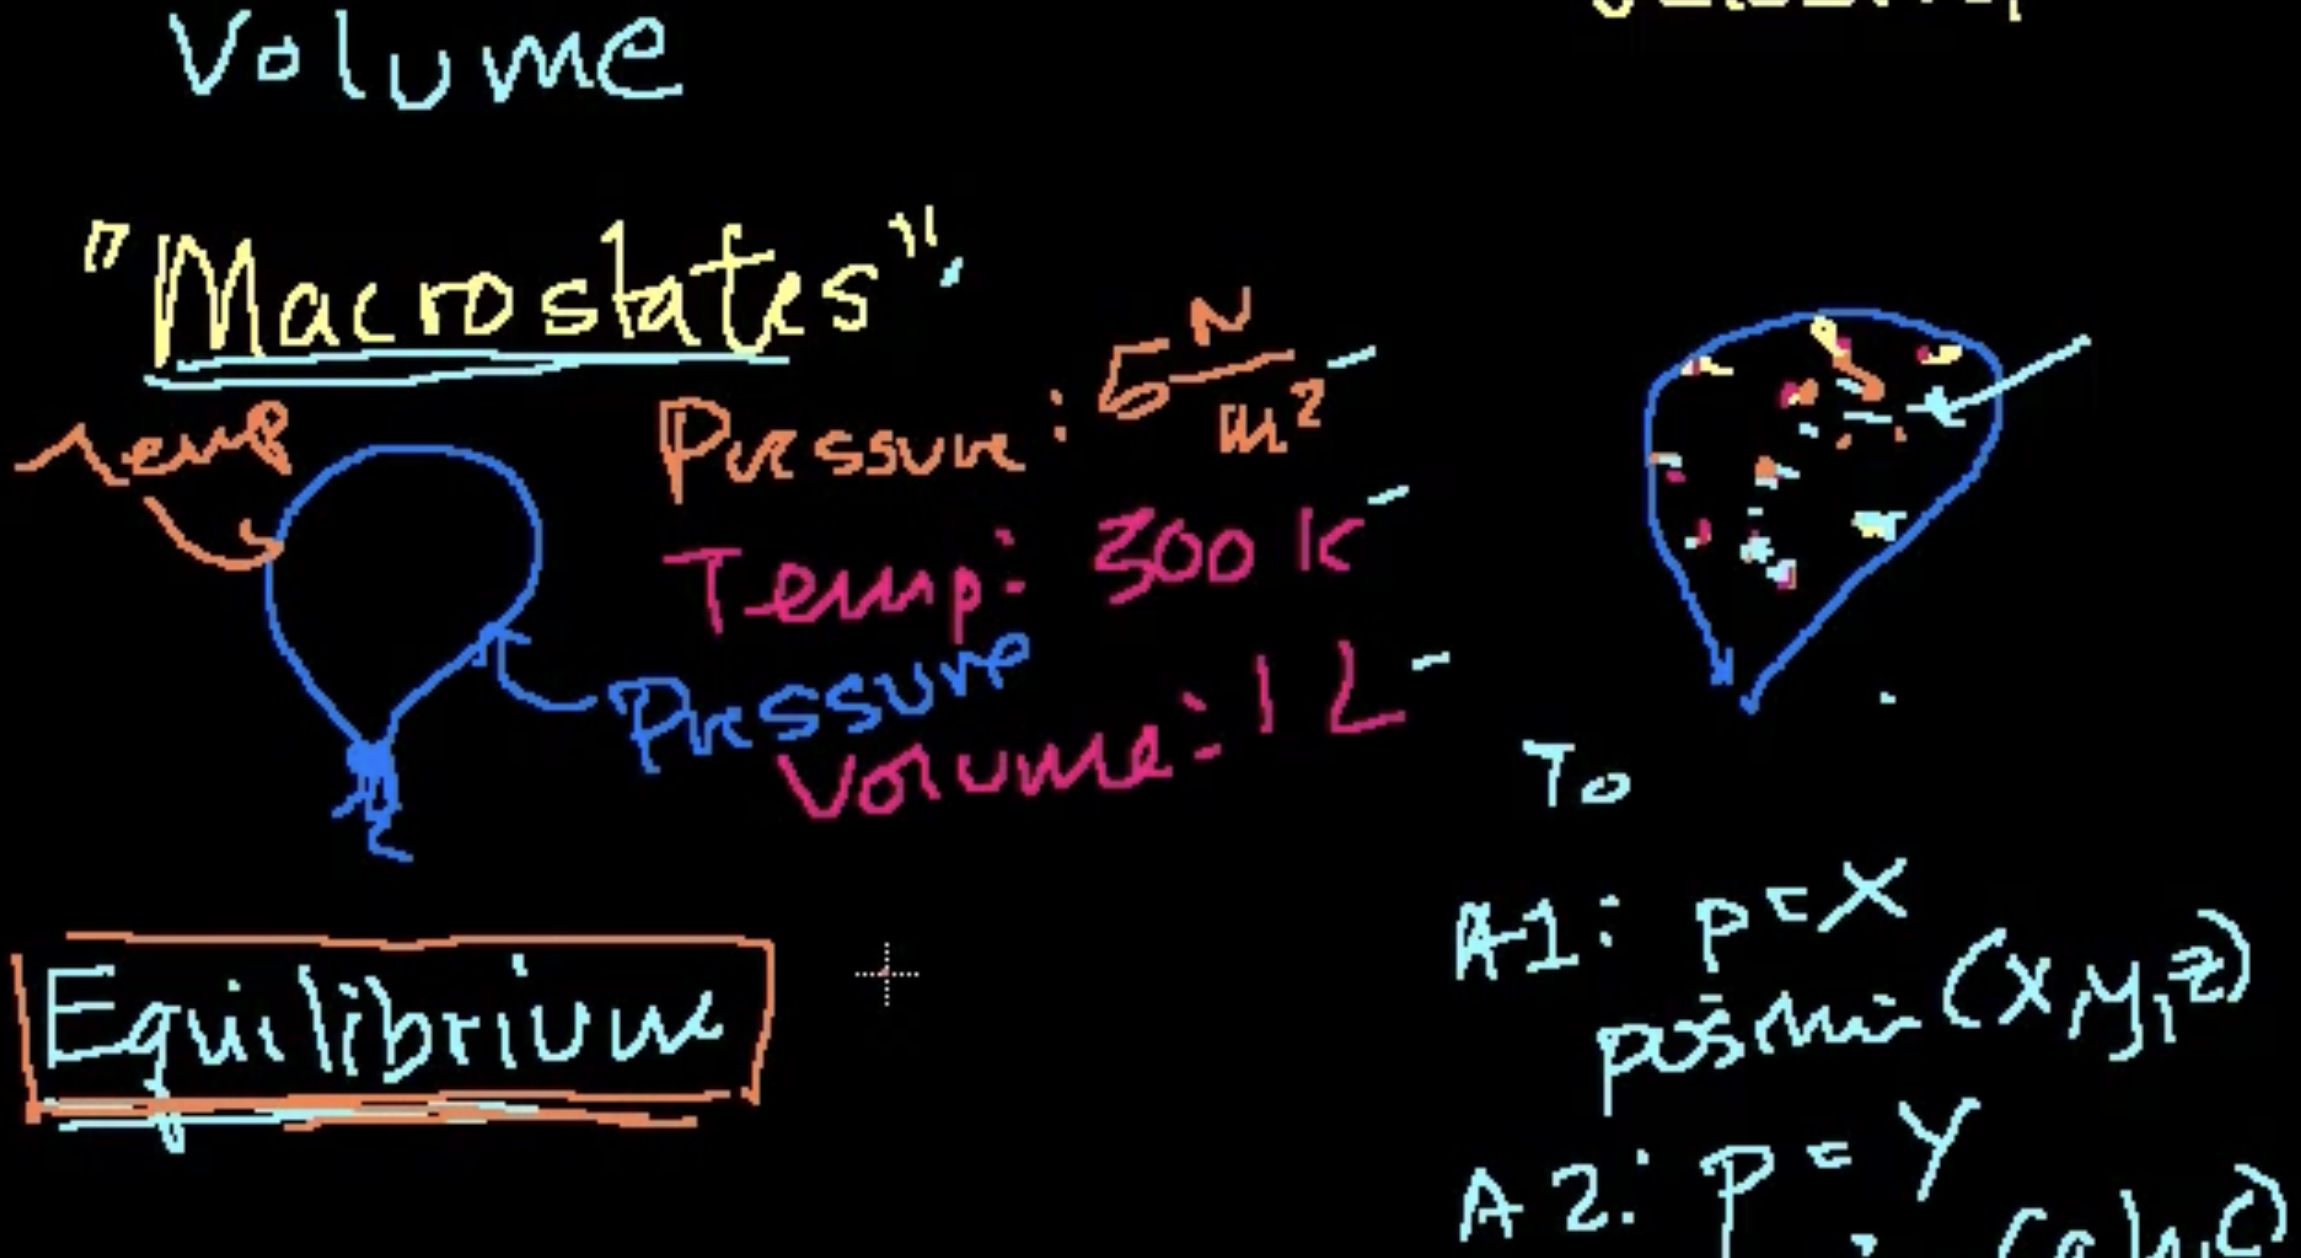 Volume
"Macrostates"
Temp
Pressure: 5 N/m²
Temp: 300 K
Pressure
Volume: 1 L
Equilibrium
To
A1: P = X
(x, y, z)
A2: P = Y
(a, b, c)